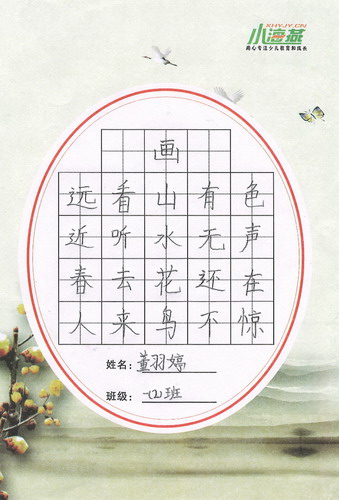 XHYJY.CN
小海燕
用心专注少儿教育和成长
画
远看山有色
近听水无声
春去花还在
人来鸟不惊
姓名：董羽婷
班级：一(2)班